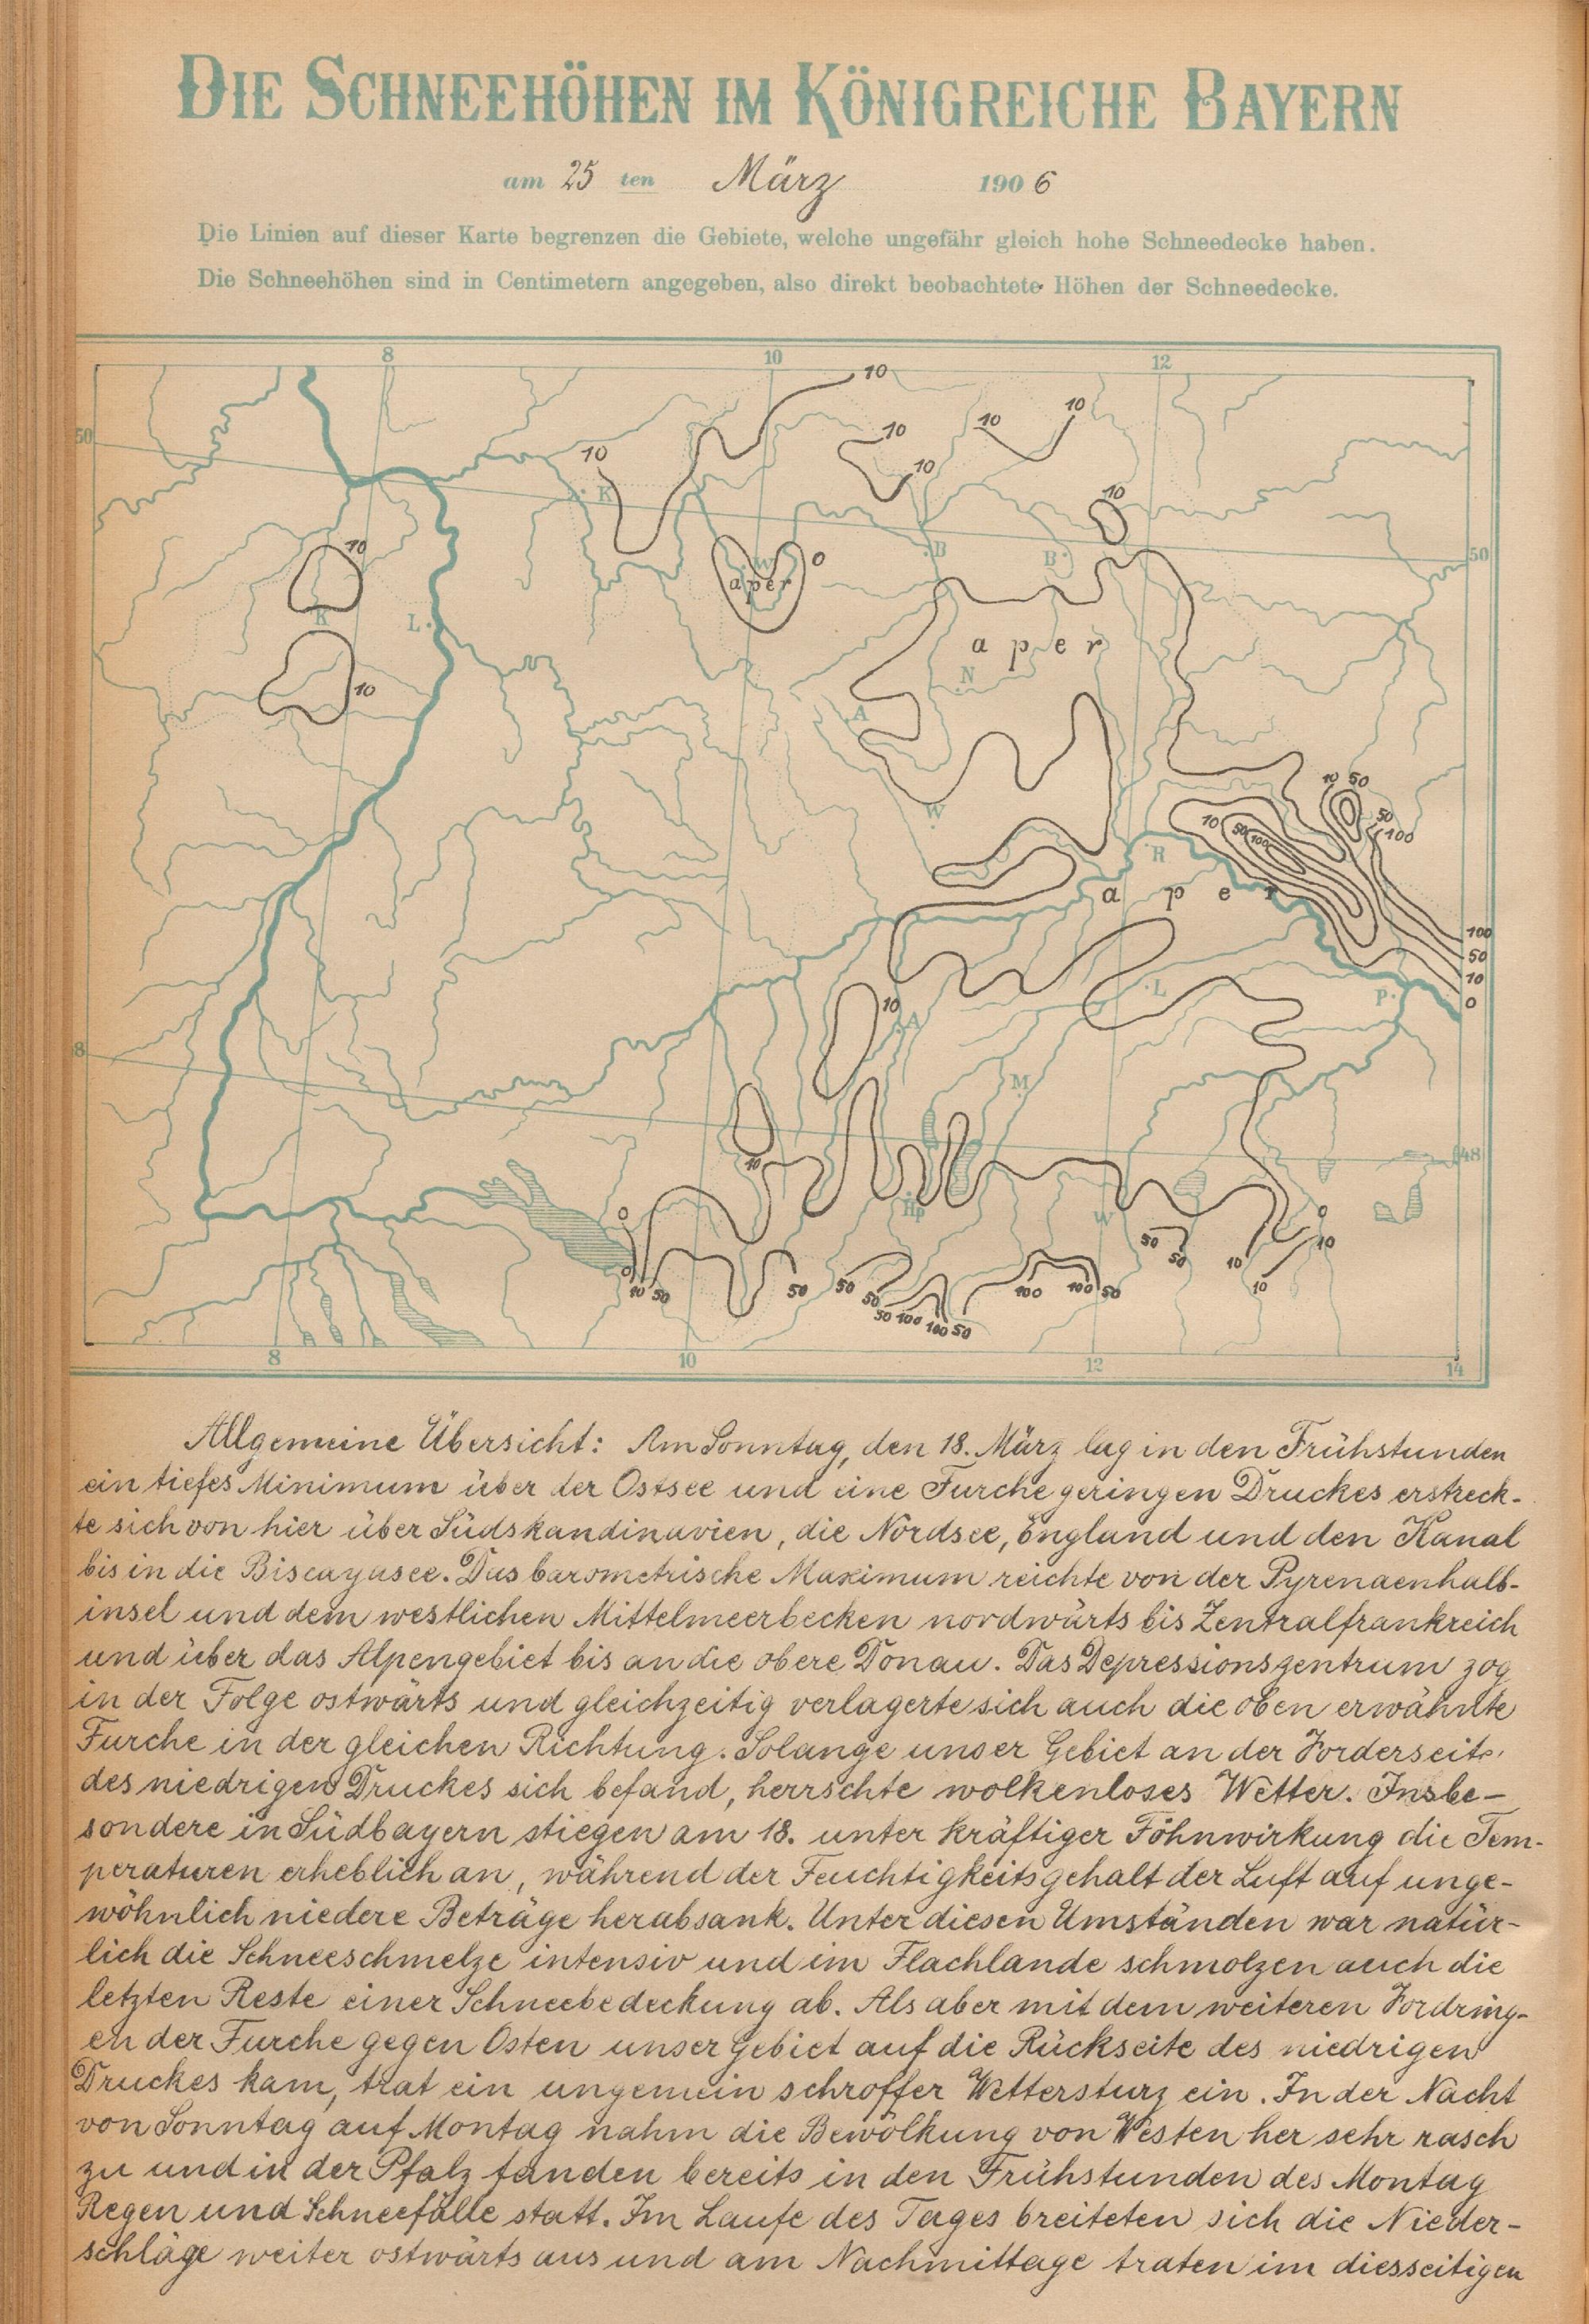 DIE SCHNEEHÖHEN IM KÖNIGREICHE BAYERN
am 25 ten März 1906
Die Linien auf dieser Karte begrenzen die Gebiete, welche ungefähr gleich hohe Schneedecke haben.
Die Schneehöhen sind in Centimetern angegeben, also direkt beobachtete Höhen der Schneedecke.
8 10 12
10
10 10
10
50
10
10
K
10
B B
50
10
W 0
aper
K
L.
aper
N
10
A
10 50
50
100
W
10 50 100
R
aper
100
50
10
0
L
P.
10
A
8
M
10
48
Hp
W
0
0
10 50
50
50
50
50 100 100 50
100 100 50
50
50
10
0
10
10
8 10 12 14
Allgemeine Übersicht: Am Sonntag, den 18. März lag in den Frühstunden
ein tiefes Minimum über der Ostsee und eine Furche geringen Druckes erstreck-
te sich von hier über Südskandinavien, die Nordsee, England und den Kanal
bis in die Biscayasee. Das barometrische Maximum reichte von der Pyrenaenhalb-
insel und dem westlichen Mittelmeerbecken nordwärts bis Zentralfrankreich
und über das Alpengebiet bis an die obere Donau. Das Depressionszentrum zog
in der Folge ostwärts und gleichzeitig verlagerte sich auch die oben erwähnte
Furche in der gleichen Richtung. Solange unser Gebiet an der Vorderseite
des niedrigen Druckes sich befand, herrschte wolkenloses Wetter. Insbe-
sondere in Südbayern stiegen am 18. unter kräftiger Föhnwirkung die Tem-
peraturen erheblich an, während der Feuchtigkeitsgehalt der Luft auf unge-
wöhnlich niedere Beträge herabsank. Unter diesen Umständen war natür-
lich die Schneeschmelze intensiv und im Flachlande schmolzen auch die
letzten Reste einer Schneebedeckung ab. Als aber mit dem weiteren Vordring-
en der Furche gegen Osten unser Gebiet auf die Rückseite des niedrigen
Druckes kam, trat ein ungemein schroffer Wettersturz ein. In der Nacht
von Sonntag auf Montag nahm die Bewölkung von Westen her sehr rasch
zu und in der Pfalz fanden bereits in den Frühstunden des Montag
Regen und Schneefälle statt. Im Laufe des Tages breiteten sich die Nieder-
schläge weiter ostwärts aus und am Nachmittage traten im diesseitigen